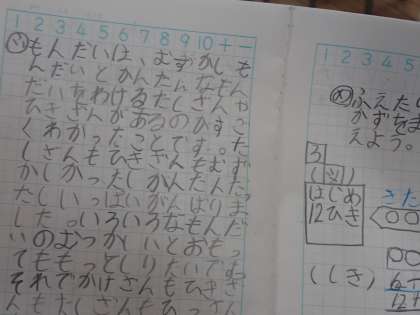 1 2 3 4 5 6 7 8 9 10 + −
もんだいは、むずかしも
んだいとかんたんなもん
だいをわけるたしざんや
ひきざんがあるのがすご
くわかったことです。た
しざんもひきざんもむず
かしかったしかんたんだ
たしいっぱいがんばりま
した。いろいろなもんだ
いのむつかしいとおもっ
てももっとしりたいです
それでかけざんもひきざ
んもたしざんもひっさん
1 2 3 4 5
ふえたり
かずを
えよう。
3
(図)
はじめ
12ひき
(しき)